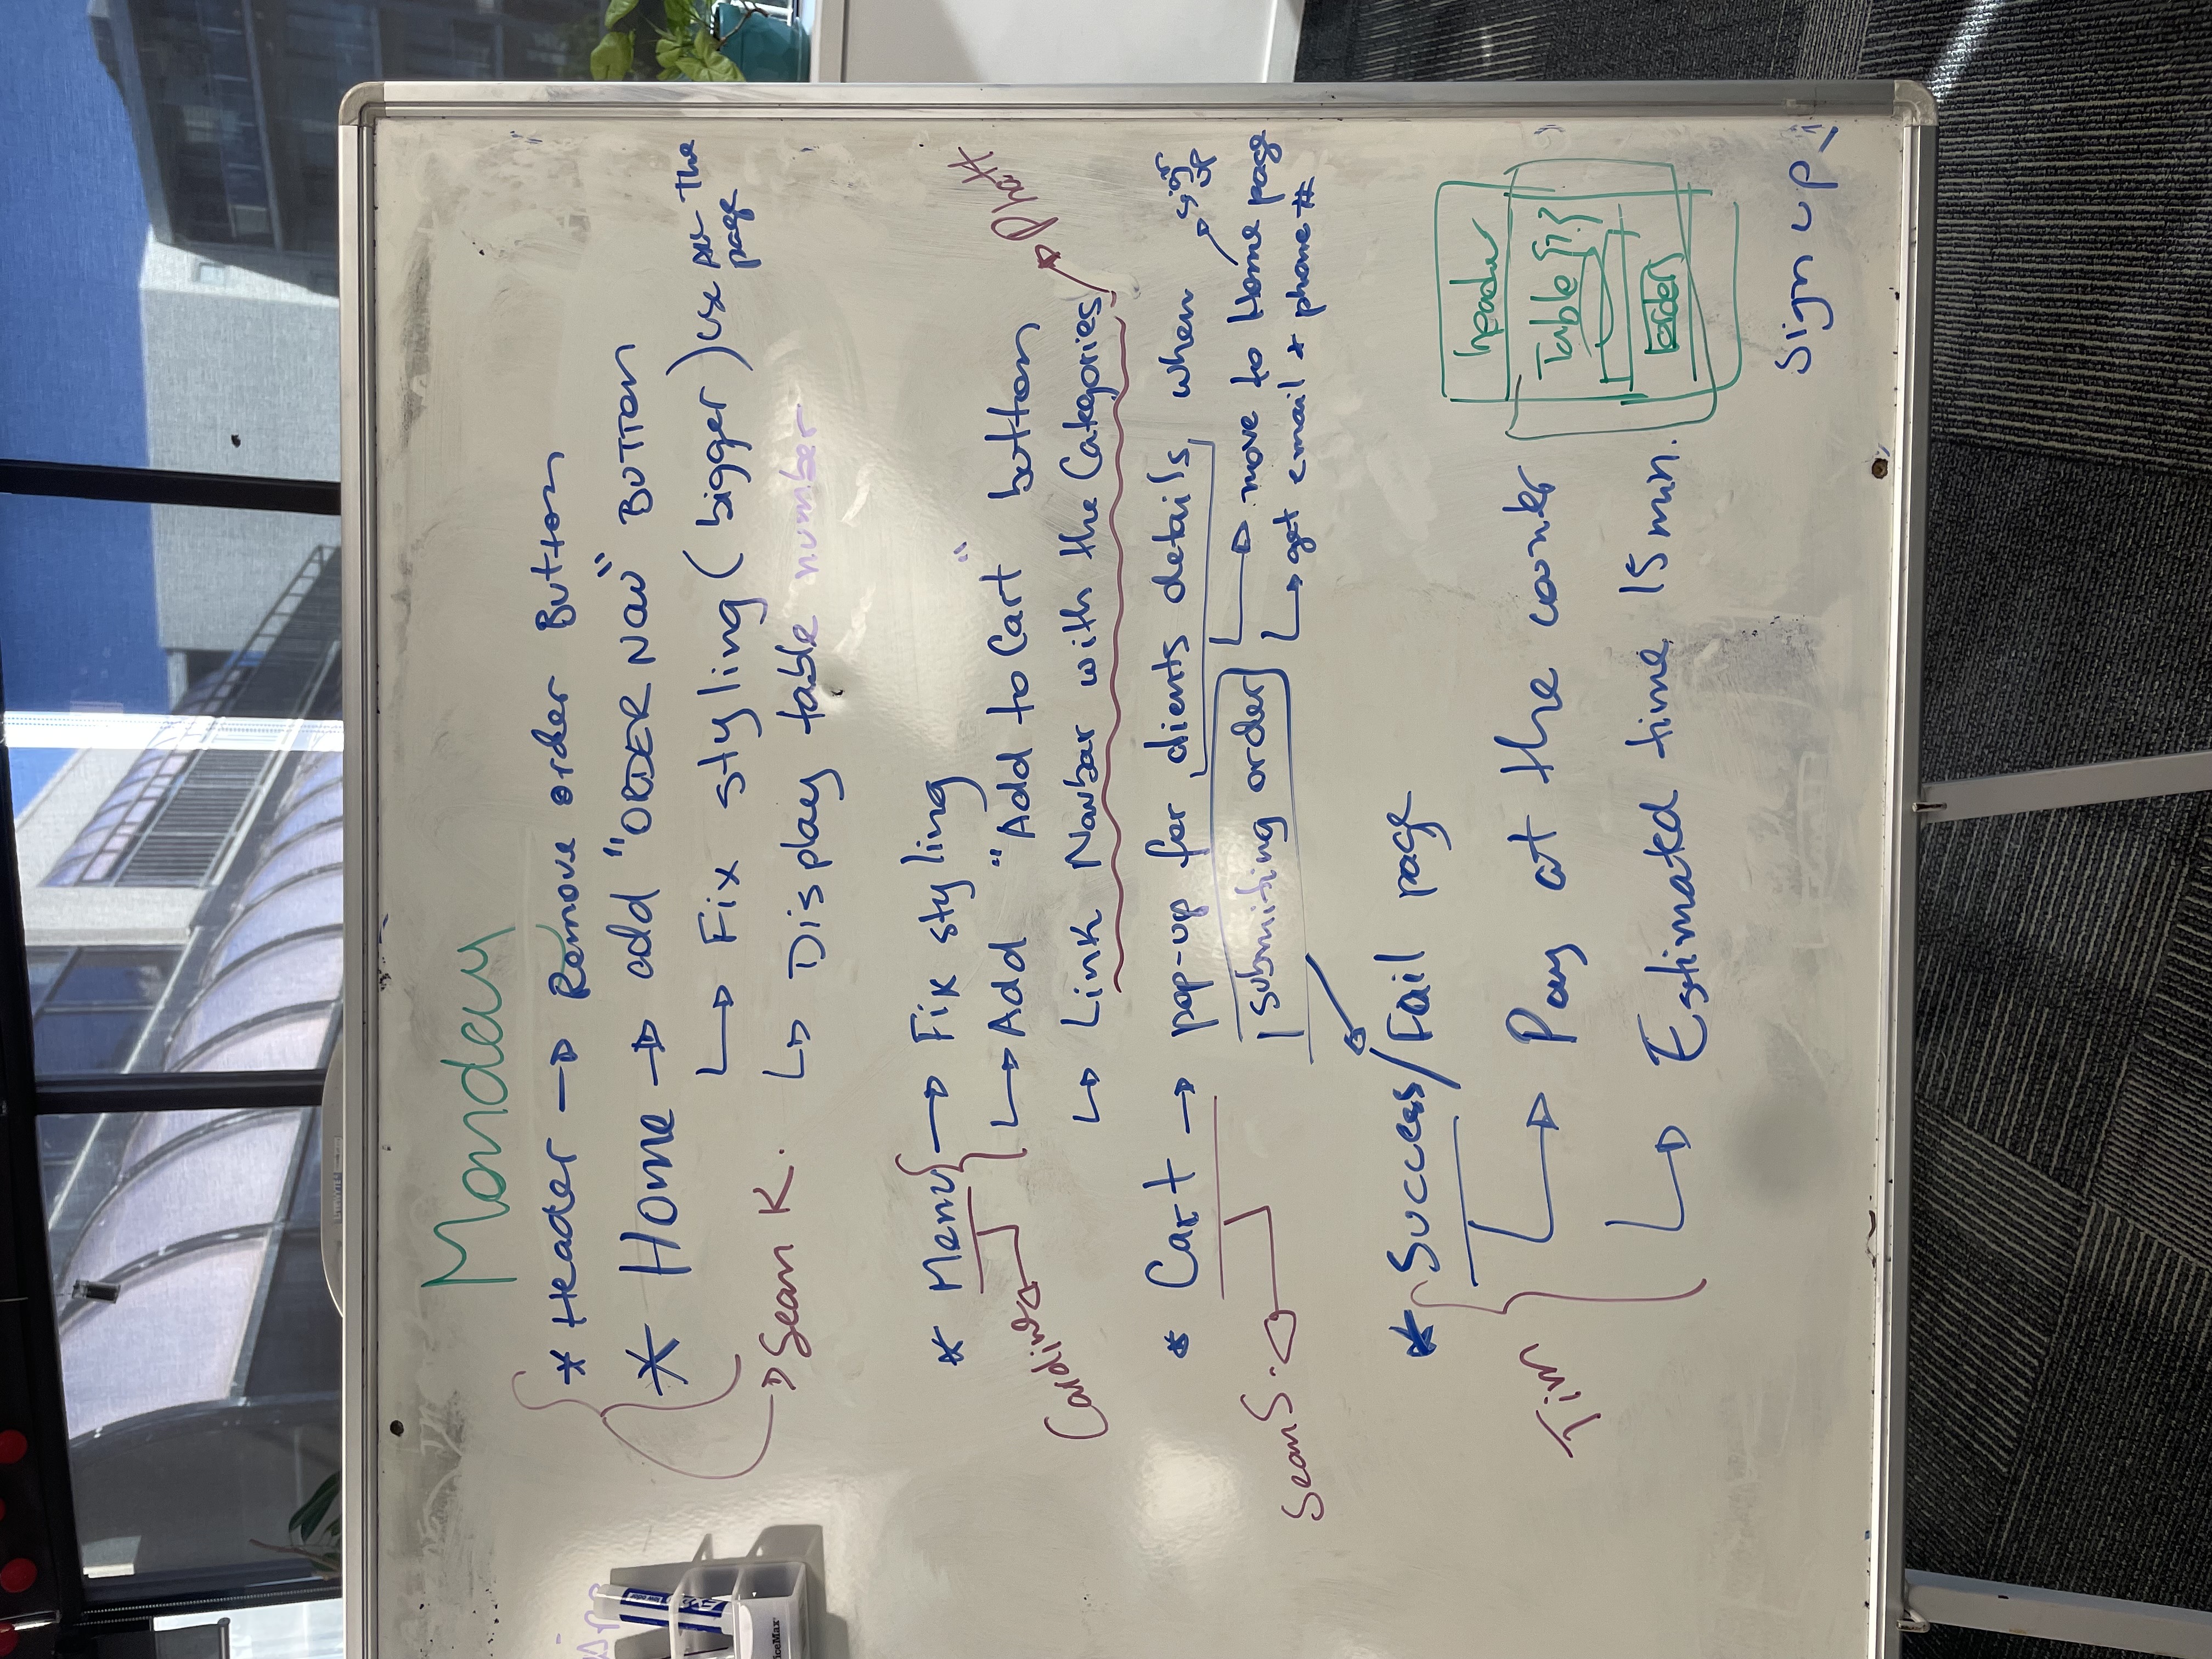 Monday
* Header → Remove order Button
* Home → add "ORDER NOW" BUTTON
↳ Fix styling (bigger) use ALL the page
Sean K.
↳ Display table number
* Menu → Fix styling
↳ Add "Add to Cart" button
Phatt
↳ Link Navbar with the Categories
* Cart → pop-up for clients details, when
sign up
submiting order
→ move to Home page
→ get email + phone #
Sean S.
* Success/Fail page
Tim
→ Pay at the counter
→ Estimated time 15 min.
header
Table {7}
orders
Sign up
iceMax